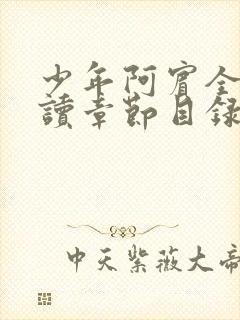 少年阿賓全
讀章節目録
中天紫薇大帝